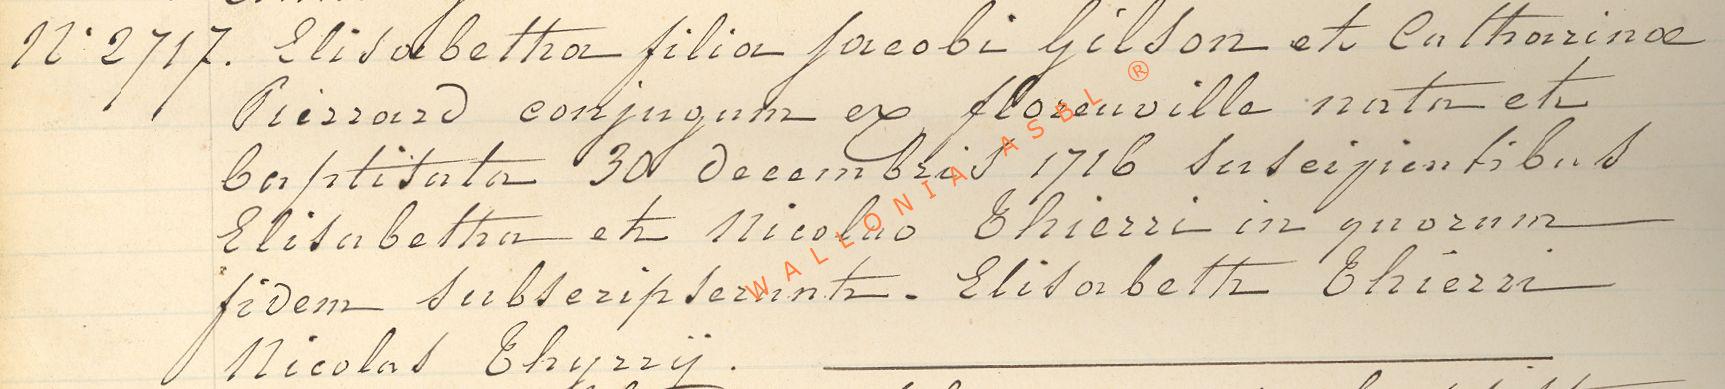 N° 2717. Elisabetha filia Jacobi Gilson et Catharinæ
Pierrard conjugum ex florenville nata et
baptisata 30 decembris 1716 suscipientibus
Elisabetha et Nicolao Thierri in quorum
fidem subscripserunt. Elisabeth Thierri
Nicolas Thyrrij.
WALLONIA ASBL ®